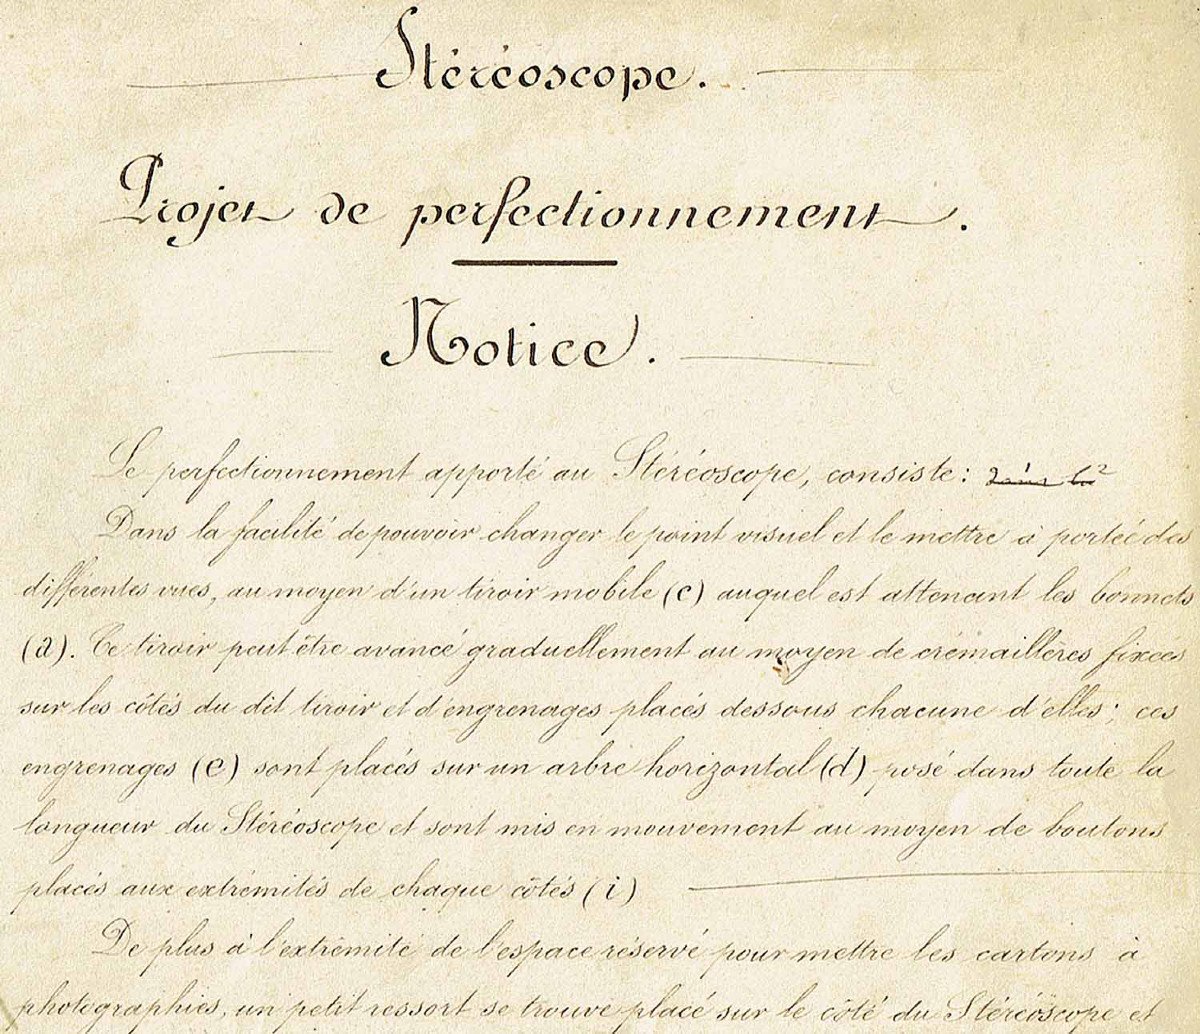 Stéréoscope.
Projet de perfectionnement.
Notice.
Le perfectionnement apporté au Stéréoscope, consiste:
Dans la facilité de pouvoir changer le point visuel et le mettre à portée des
différentes vues, au moyen d'un tiroir mobile (c) auquel est attenant les bonnets
(a). Ce tiroir peut être avancé graduellement au moyen de crémaillères fixées
sur les côtés du dit tiroir et d'engrenages placés dessous chacune d'elles; ces
engrenages (e) sont placés sur un arbre horizontal (d) posé dans toute la
longueur du Stéréoscope et sont mis en mouvement au moyen de boutons
placés aux extrémités de chaque côtés (i)
De plus à l'extrêmité de l'espace réservé pour mettre les cartons à
photographies, un petit ressort se trouve placé sur le côté du Stéréoscope et